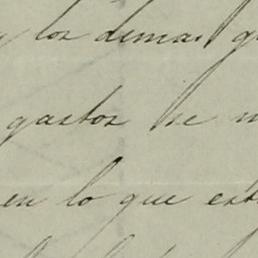 y los demas g
gastos se n
en lo que est